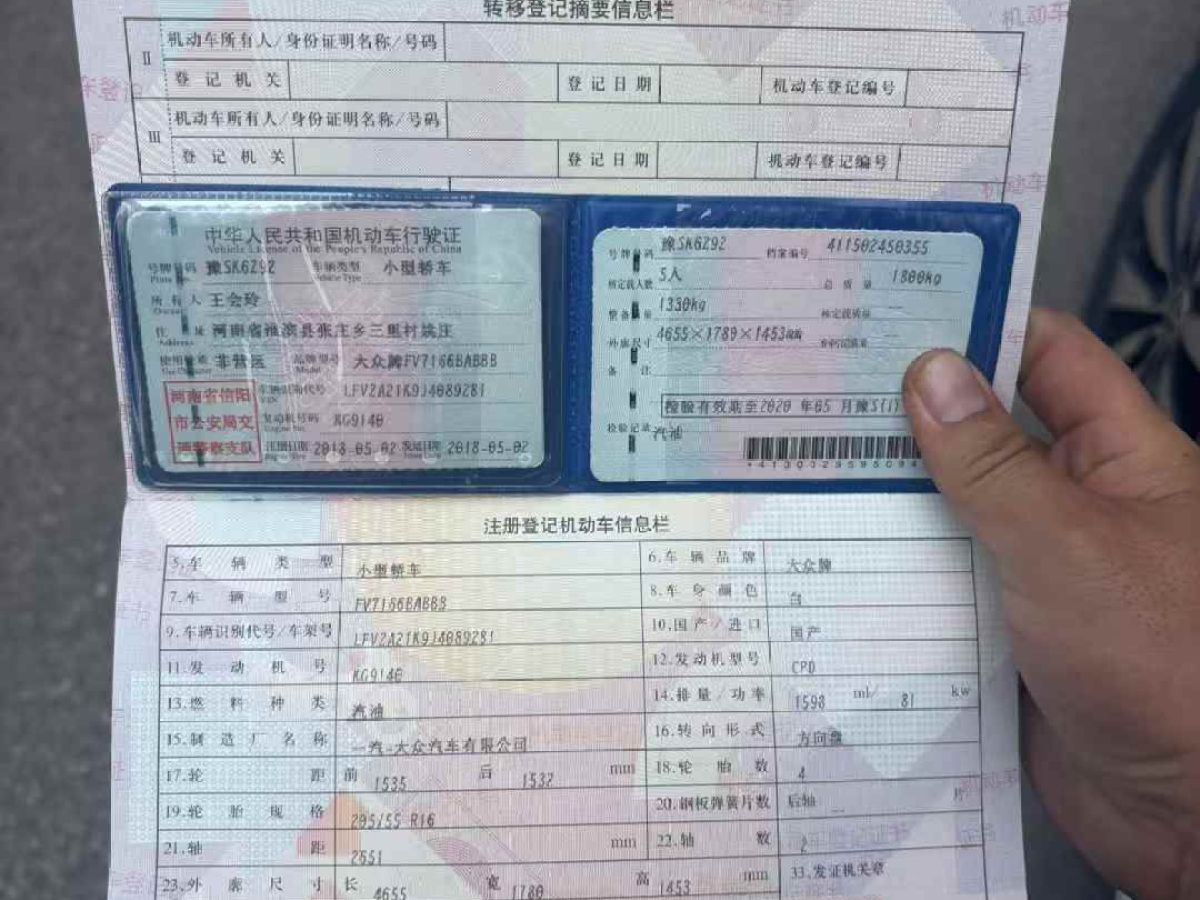 转移登记摘要信息栏
Ⅱ 机动车所有人/身份证明名称/号码
登记机关 登记日期 机动车登记编号
Ⅲ 机动车所有人/身份证明名称/号码
登记机关 登记日期 机动车登记编号
中华人民共和国机动车行驶证
Vehicle License of the People's Republic of China
号牌号码 豫SK6Z92 车辆类型 小型轿车
所有人 王会玲
住址 河南省淮滨县张庄乡三里村姚庄
使用性质 非营运 品牌型号 大众牌FV7166BABBB
河南省信阳
市公安局交
通警察支队
车辆识别代号 LFV2A21K9J4089281
发动机号码 KG9140
注册日期 2018-05-02 发证日期 2018-05-02
号牌号码 豫SK6Z92 档案编号 411502450355
核定载人数 5人 总质量 1800kg
整备质量 1330kg 核定载质量
外廓尺寸 4655×1789×1453mm
备注
检验有效期至2020年05月豫S(1)
检验记录 汽油
注册登记机动车信息栏
5.车辆类型 小型轿车 6.车辆品牌 大众牌
7.车辆型号 FV7166BABBB 8.车身颜色 白
9.车辆识别代号/车架号 LFV2A21K9J4089281 10.国产/进口 国产
11.发动机号 KG9140 12.发动机型号 CPD
13.燃料种类 汽油 14.排量/功率 1598 ml/ 81 kw
15.制造厂名称 一汽-大众汽车有限公司 16.转向形式 方向盘
17.轮距 前 1535 后 1532 mm 18.轮胎数 4
19.轮胎规格 205/55 R16 20.钢板弹簧片数 后轴 片
21.轴距 2651 mm 22.轴数 2
23.外廓尺寸 长 4655 宽 1780 高 1453 mm 33.发证机关章